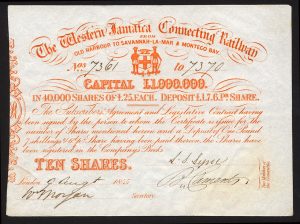 The Western Jamaica Connecting Railway
FROM
OLD HARBOUR TO SAVANNAH-LA-MAR & MONTEGO BAY.
Nos. 7361 to 7370
CAPITAL £1,000,000.
IN 40,000 SHARES OF £25 EACH. DEPOSIT £1.7.6 Pr. SHARE
The Subscribers Agreement and Legislative Contract having
been signed by the person to whom the Certificate is given for the
number of Shares mentioned hereon and a Deposit of One Pound
7 shillings & 6d pr Share having been paid thereon, the Shares have
been registered in the Company's Books.
TEN SHARES.
London 1845
Wm Morgan
Secretary